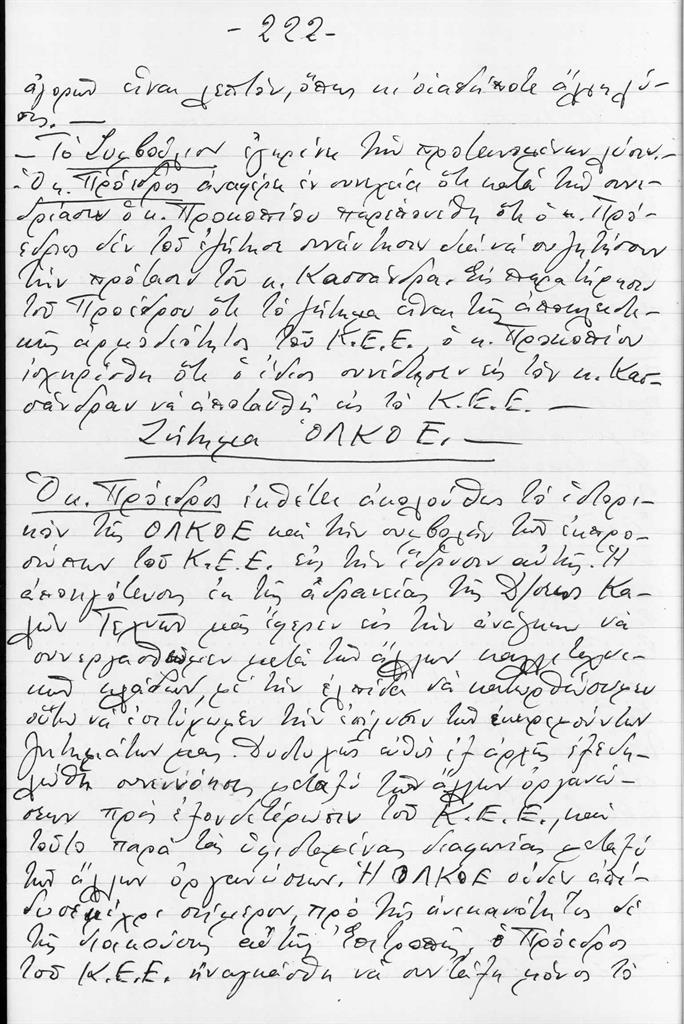 - 222 -
ἀγορῶν εἶναι λεπτόν, ὅπως κι' οἱαδήποτε ἄλλη λύ-
σις. —
- Τὸ Συμβούλιον ἐγκρίνει τὴν προτεινομένην λύσιν. -
- Ὁ κ. Πρόεδρος ἀναφέρει ἐν συνεχείᾳ ὅτι κατὰ τὴν συνε-
δρίασιν ὁ κ. Προκοπίου παρεπονέθη ὅτι ὁ κ. Πρό-
εδρος δὲν τοῦ ἐζήτησε συνάντησιν διὰ νὰ συζητήσουν
τὴν πρότασιν τοῦ κ. Κασσάνδρα. Εἰς παρατήρησιν
τοῦ Προέδρου ὅτι τὸ ζήτημα εἶναι τῆς ἀποκλειστι-
κῆς ἁρμοδιότητος τοῦ Κ.Ε.Ε., ὁ κ. Προκοπίου
ἰσχυρίσθη ὅτι ὁ ἴδιος συνέστησεν εἰς τὸν κ. Κασ-
σάνδραν νὰ ἀποτανθῇ εἰς τὸ Κ.Ε.Ε. —
Ζήτημα ΟΛΚΟΕ. —
Ὁ κ. Πρόεδρος ἐκθέτει ἀκολούθως τὸ ἱστορι-
κὸν τῆς ΟΛΚΟΕ καὶ τὴν συμβολὴν τῶν ἐκπρο-
σώπων τοῦ Κ.Ε.Ε. εἰς τὴν ἵδρυσιν αὐτῆς. Ἡ
ἀπογοήτευσις ἐκ τῆς ἀδρανείας τῆς Δ/σεως Κα-
λῶν Τεχνῶν μᾶς ἔφερεν εἰς τὴν ἀνάγκην νὰ
συνεργασθῶμεν μετὰ τῶν ἄλλων καλλιτεχνι-
κῶν κλάδων, μὲ τὴν ἐλπίδα νὰ κατορθώσουμεν
οὕτω νὰ ἐπιτύχωμεν τὴν ἐπίλυσιν τῶν ἐκκρεμούντων
ζητημάτων μας. Δυστυχῶς εὐθὺς ἐξ ἀρχῆς ἐξεδη-
λώθη συνεννόησις μεταξὺ τῶν ἄλλων ὀργανώ-
σεων πρὸς ἐξουδετέρωσιν τοῦ Κ.Ε.Ε., καὶ
τοῦτο παρὰ τὰς ὑφισταμένας διαφωνίας μεταξὺ
τῶν ἄλλων ὀργανώσεων. Ἡ ΟΛΚΟΕ οὐδὲν ἀπέ-
δωσε μέχρι σήμερον, πρὸ τῆς ἀνικανότητος δὲ
τῆς διοικούσης αὐτῆς Ἐπιτροπῆς, ὁ Πρόεδρος
τοῦ Κ.Ε.Ε. ἠναγκάσθη νὰ συντάξῃ μόνος τὸ